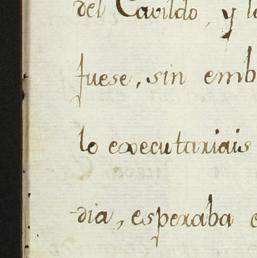 del Cavildo, y l
fuese, sin emb
lo executariais
dia, esperaba